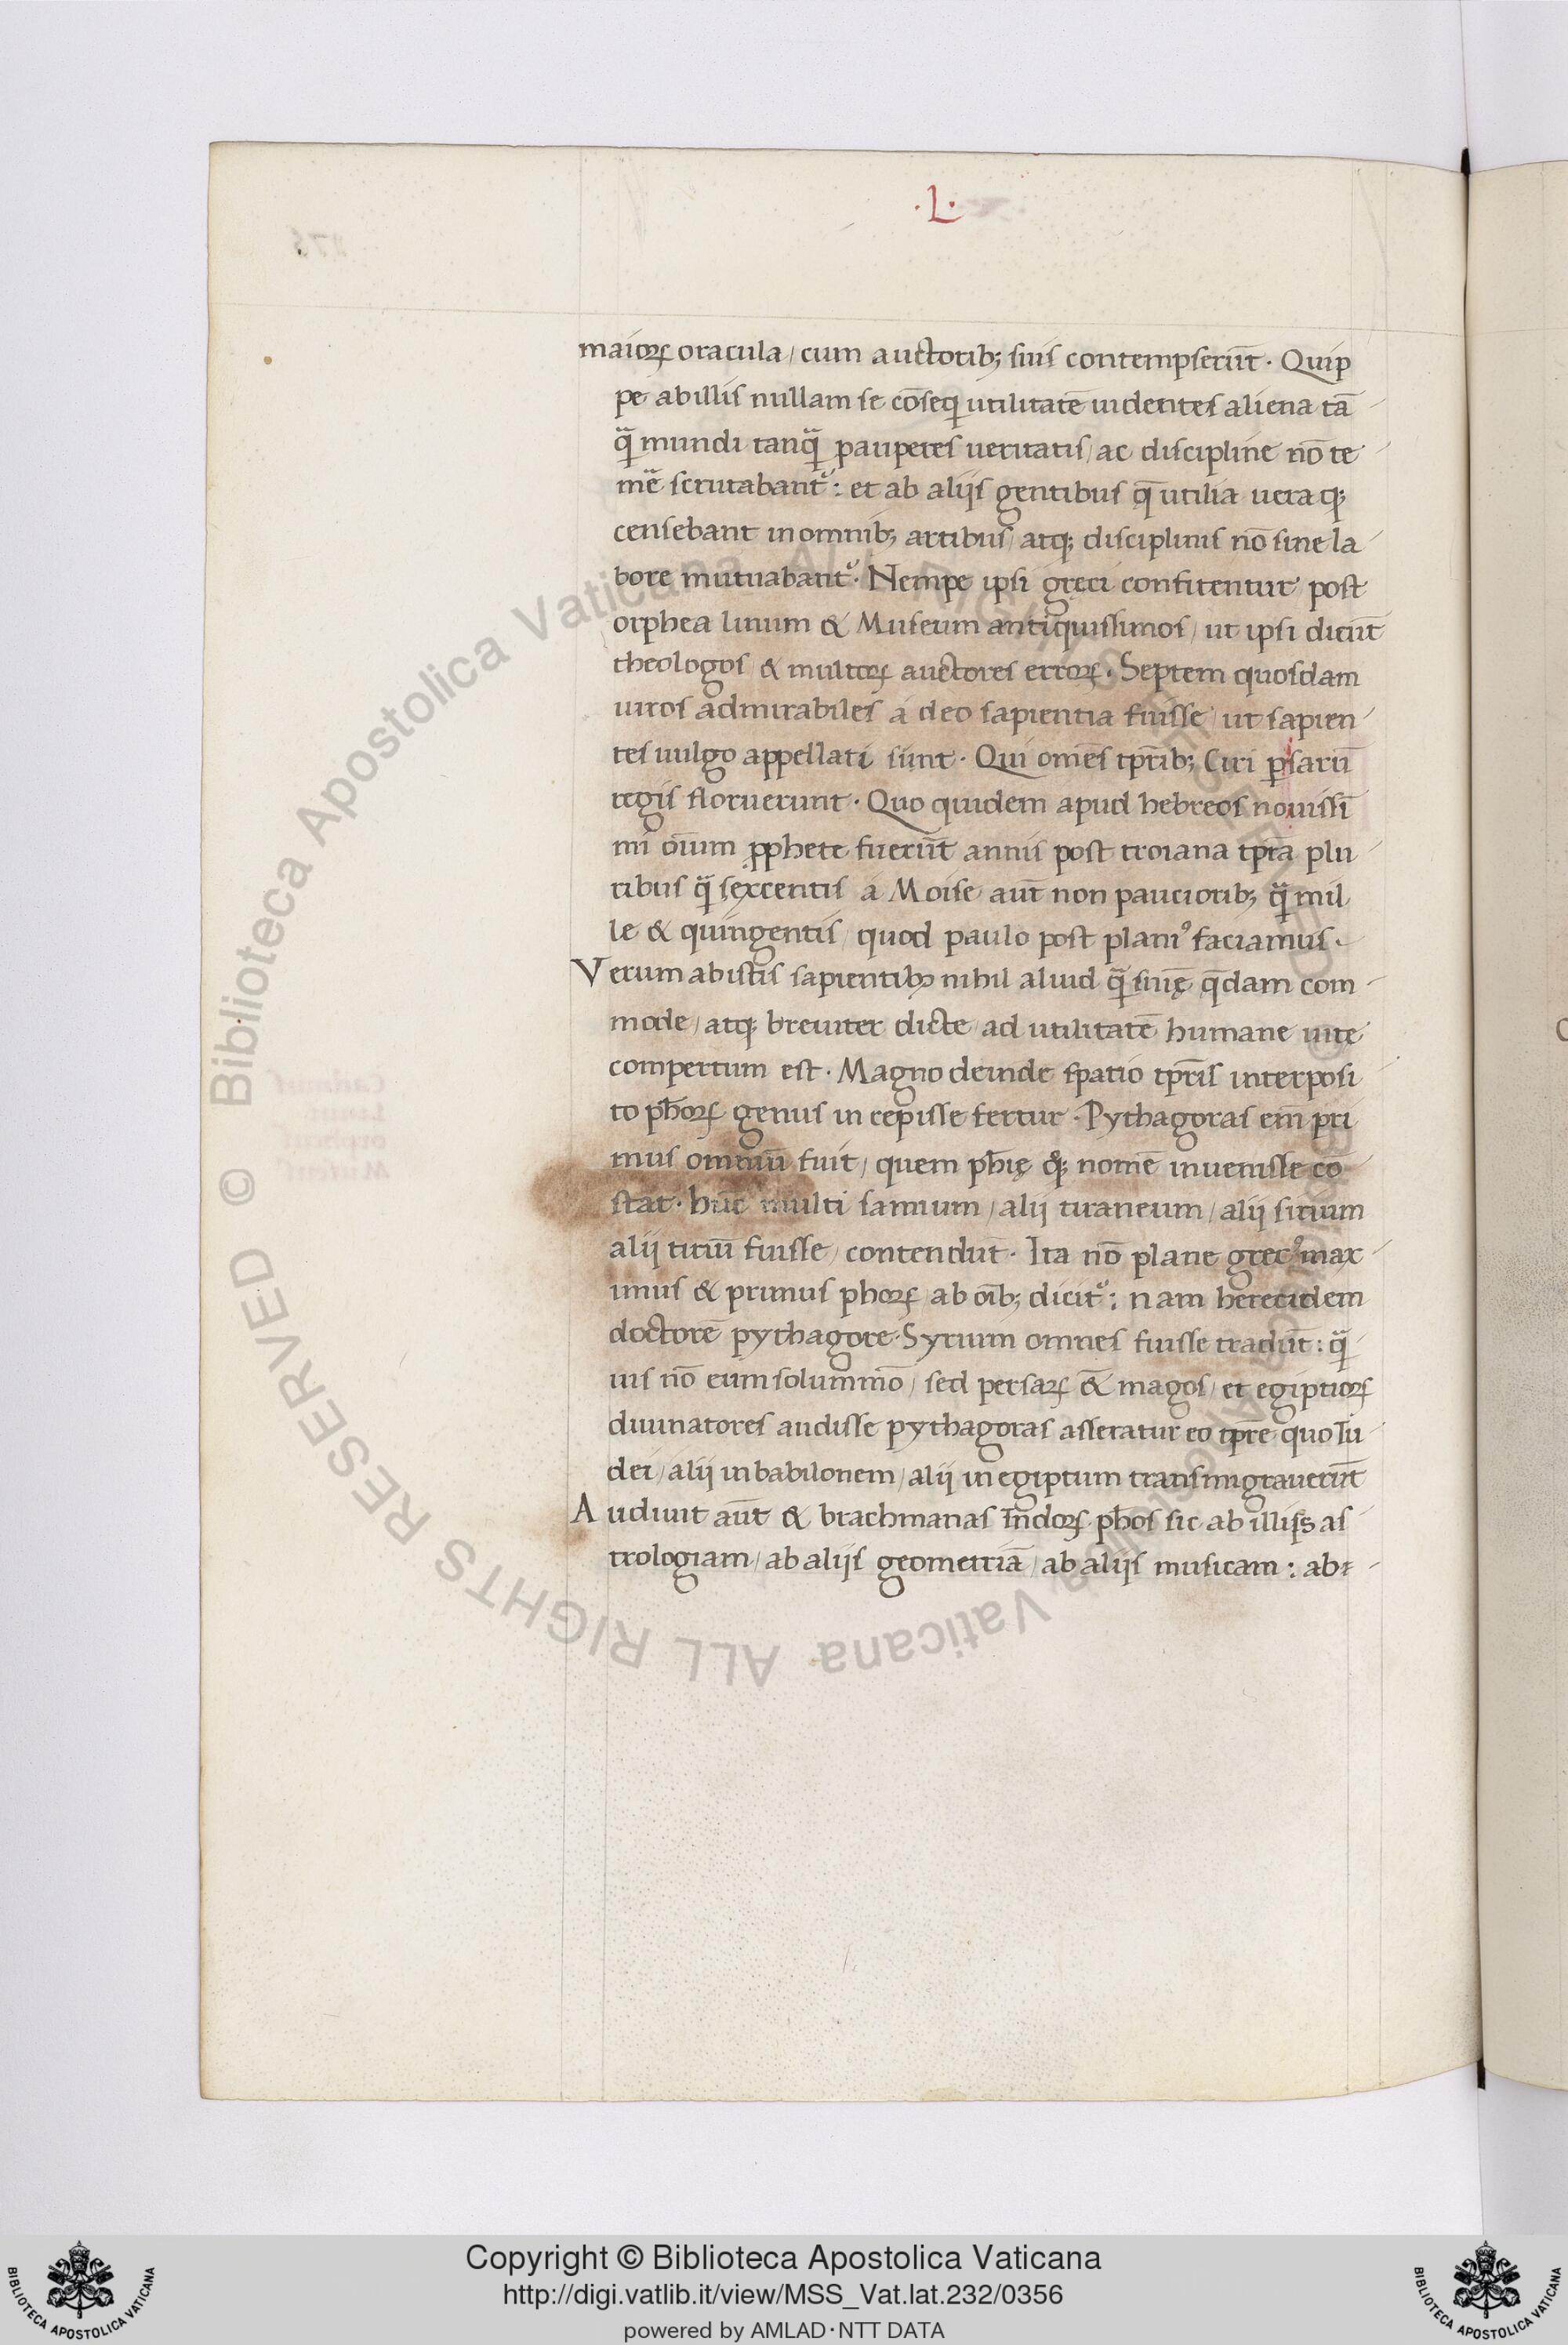 ·L·
maioꝝ oracula / cum auctorib; suis contempserūt · Quip
pe ab illis nullam se cōseq̄ utilitatē uidentes aliena tā
q̄ mundi tanq̄ pauperes ueritatis / ac discipline nō te
mē scrutabant᷑ : et ab alijs gentibus q̄ utilia ueraq;
censebant in omnib; artibus / atq; disciplinis nō sine la
bore mutuabant᷑ · Nempe ipsi greci confitentur post
orphea linum & Museum antiquissimos / ut ipsi dicūt
theologos & multoꝝ auctores erroꝝ · Septem quosdam
uiros admirabiles a deo sapientia fuisse / ut sapien
tes uulgo appellati sunt · Qui omēs tp̄rib; Ciri ꝑsarū
regis floruerunt · Quo quidem apud hebreos nouissī
mi oīum ꝓphete fuerūt annis post troiana tp̄ra plu
ribus q̄ sexcentis a Moise aūt non pauciorib; q̄ mil
le & quingentis / quod paulo post planiꝰ faciamus ·
Verum ab istis sapientibꝫ nihil aliud q̄ sn̄ię q̄dam com
mode / atq; breuiter dicte / ad utilitatē humane uitę
compertum est · Magno deinde spatio tp̄ris interposi
to ph̄oꝝ genus incepisse fertur · Pythagoras em̄ pri
mus omniū fuit / quem ph̄ię qq; nomē inuenisse cō
stat · hūc multi samium / alij tiraneum / alij sirium
alij tiriū fuisse / contendūt · Ita nō plane grecꝰ max
imus & primus ph̄oꝝ ab oīb; dicit᷑ : nam herecidem
doctorē pythagore Syrium omnes fuisse tradūt : q̄
uis nō eum solummō / sed persaꝝ &̄ magos / et egiptioꝝ
diuinatores audisse pythagoras asseratur eo tp̄re quo Iu
dei / alij in babilonem / alij in egiptum transmigrauerūt
Audiuit aūt & brachmanas Īndoꝝ ph̄os sic ab illis as
trologiam / ab alijs geometriā / ab alijs musicam : ab
Copyright © Biblioteca Apostolica Vaticana
http://digi.vatlib.it/view/MSS_Vat.lat.232/0356
powered by AMLAD·NTT DATA